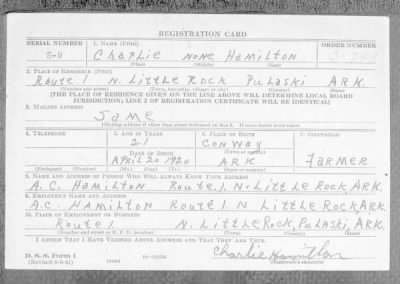 REGISTRATION CARD
SERIAL NUMBER 1. NAME (Print) ORDER NUMBER
S-9 Charlie none Hamilton
(First) (Middle) (Last)
2. PLACE OF RESIDENCE (Print)
Route 1 N. Little Rock Pulaski ARK.
(Number and street) (Town, township, village, or city) (County) (State)
[THE PLACE OF RESIDENCE GIVEN ON THE LINE ABOVE WILL DETERMINE LOCAL BOARD
JURISDICTION; LINE 2 OF REGISTRATION CERTIFICATE WILL BE IDENTICAL]
3. MAILING ADDRESS
Same
4. TELEPHONE 5. AGE IN YEARS 6. PLACE OF BIRTH 7. OCCUPATION
21 Conway
DATE OF BIRTH (Town or county)
April 20 1920 ARK Farmer
(Exchange) (Number) (Mo.) (Day) (Yr.) (State or country)
8. NAME AND ADDRESS OF PERSON WHO WILL ALWAYS KNOW YOUR ADDRESS
A.C. Hamilton Route 1. N. Little Rock, ARK.
9. EMPLOYER'S NAME AND ADDRESS
A.C. Hamilton Route 1. N Little Rock, ARK.
10. PLACE OF EMPLOYMENT OR BUSINESS
Route 1 N. Little Rock, Pulaski, ARK.
(Number and street or R. F. D. number) (Town) (County) (State)
I AFFIRM THAT I HAVE VERIFIED ABOVE ANSWERS AND THAT THEY ARE TRUE.
D. S. S. Form 1 Charlie Hamilton
(over) (Registrant's signature)